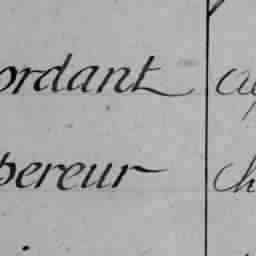 ordant
pereur ch